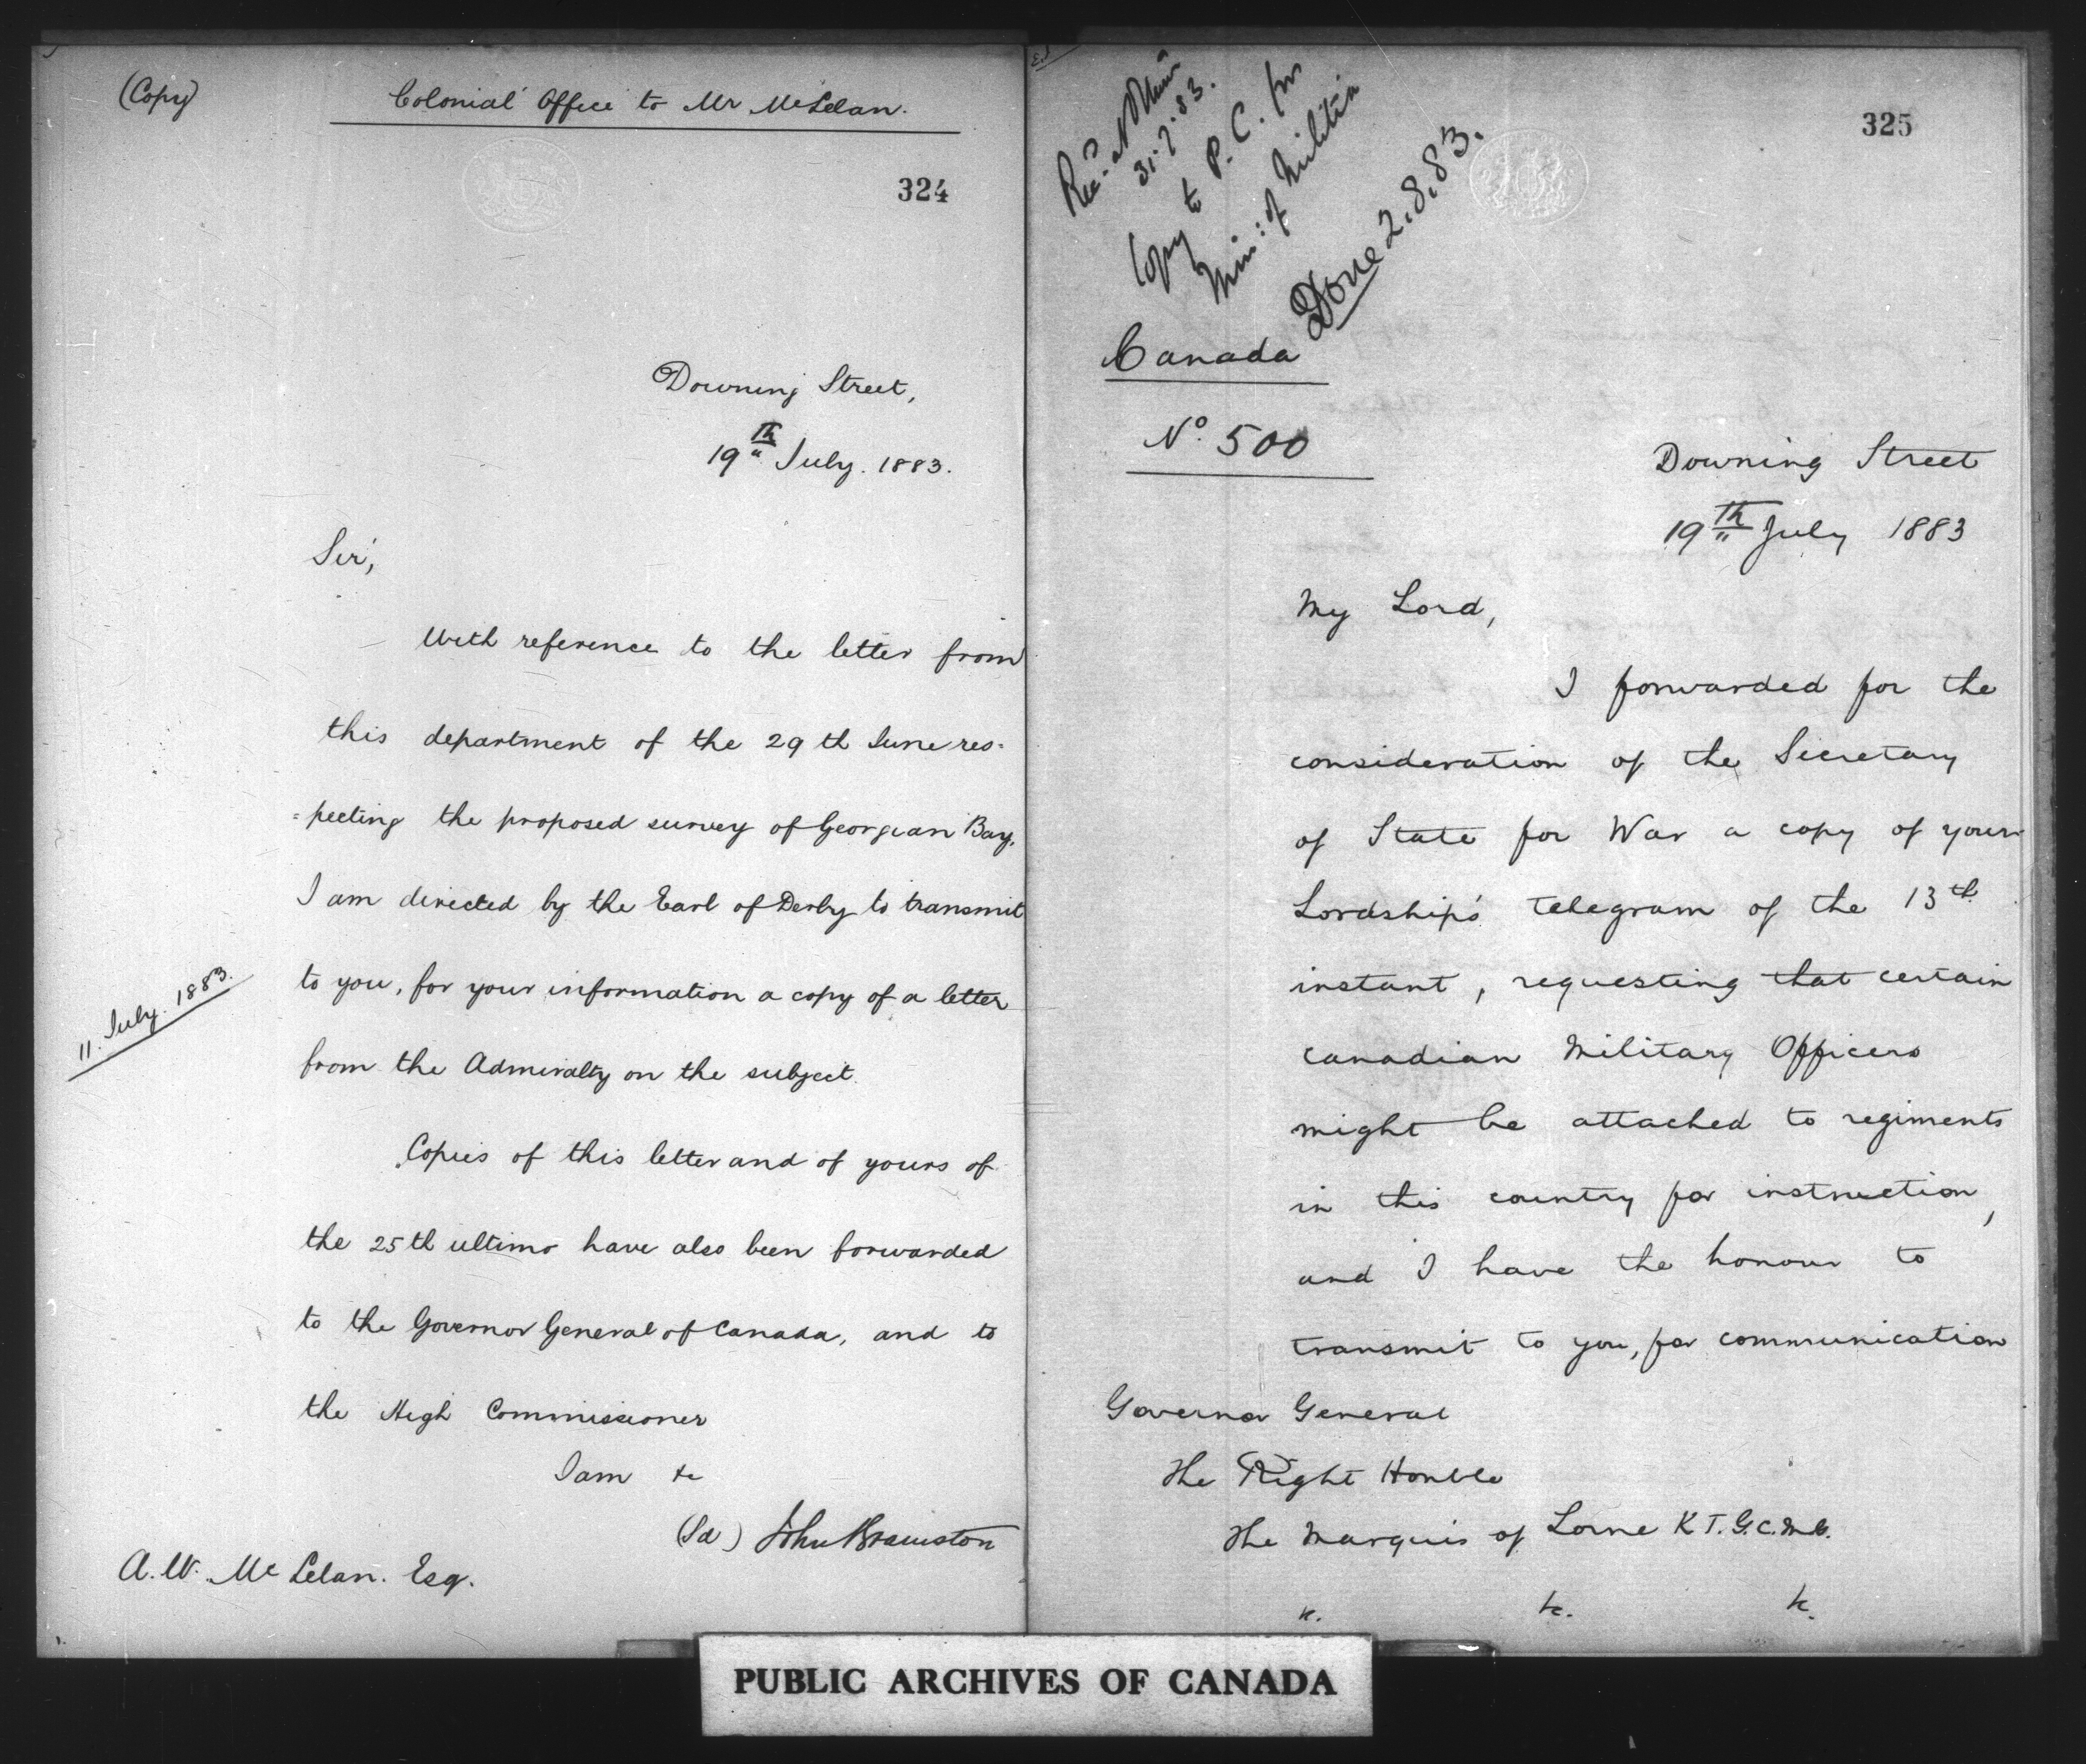 (Copy)
Colonial Office to Mr McLelan.
324
Downing Street,
19th July. 1883.
Sir,
With reference to the letter from
this department of the 29th June res-
=pecting the proposed survey of Georgian Bay,
I am directed by the Earl of Derby to transmit
to you, for your information a copy of a letter
11. July. 1883.
from the Admiralty on the subject.
Copies of this letter and of yours of
the 25th ultimo have also been forwarded
to the Governor General of Canada, and to
the High Commissioner
I am &c
(Sd) John Bramston
A. W. McLelan. Esq.
325
Recd
31.7.83.
Copy to P.C. for
Min: of Militia
Done 2.8.83.
Canada
No. 500
Downing Street
19th July 1883
My Lord,
I forwarded for the
consideration of the Secretary
of State for War a copy of your
Lordship's telegram of the 13th
instant, requesting that certain
Canadian Military Officers
might be attached to regiments
in this country for instruction,
and I have the honour to
transmit to you, for communication
Governor General
The Right Honble
The Marquis of Lorne K.T. G.C.M.G.
&c. &c. &c.
PUBLIC ARCHIVES OF CANADA